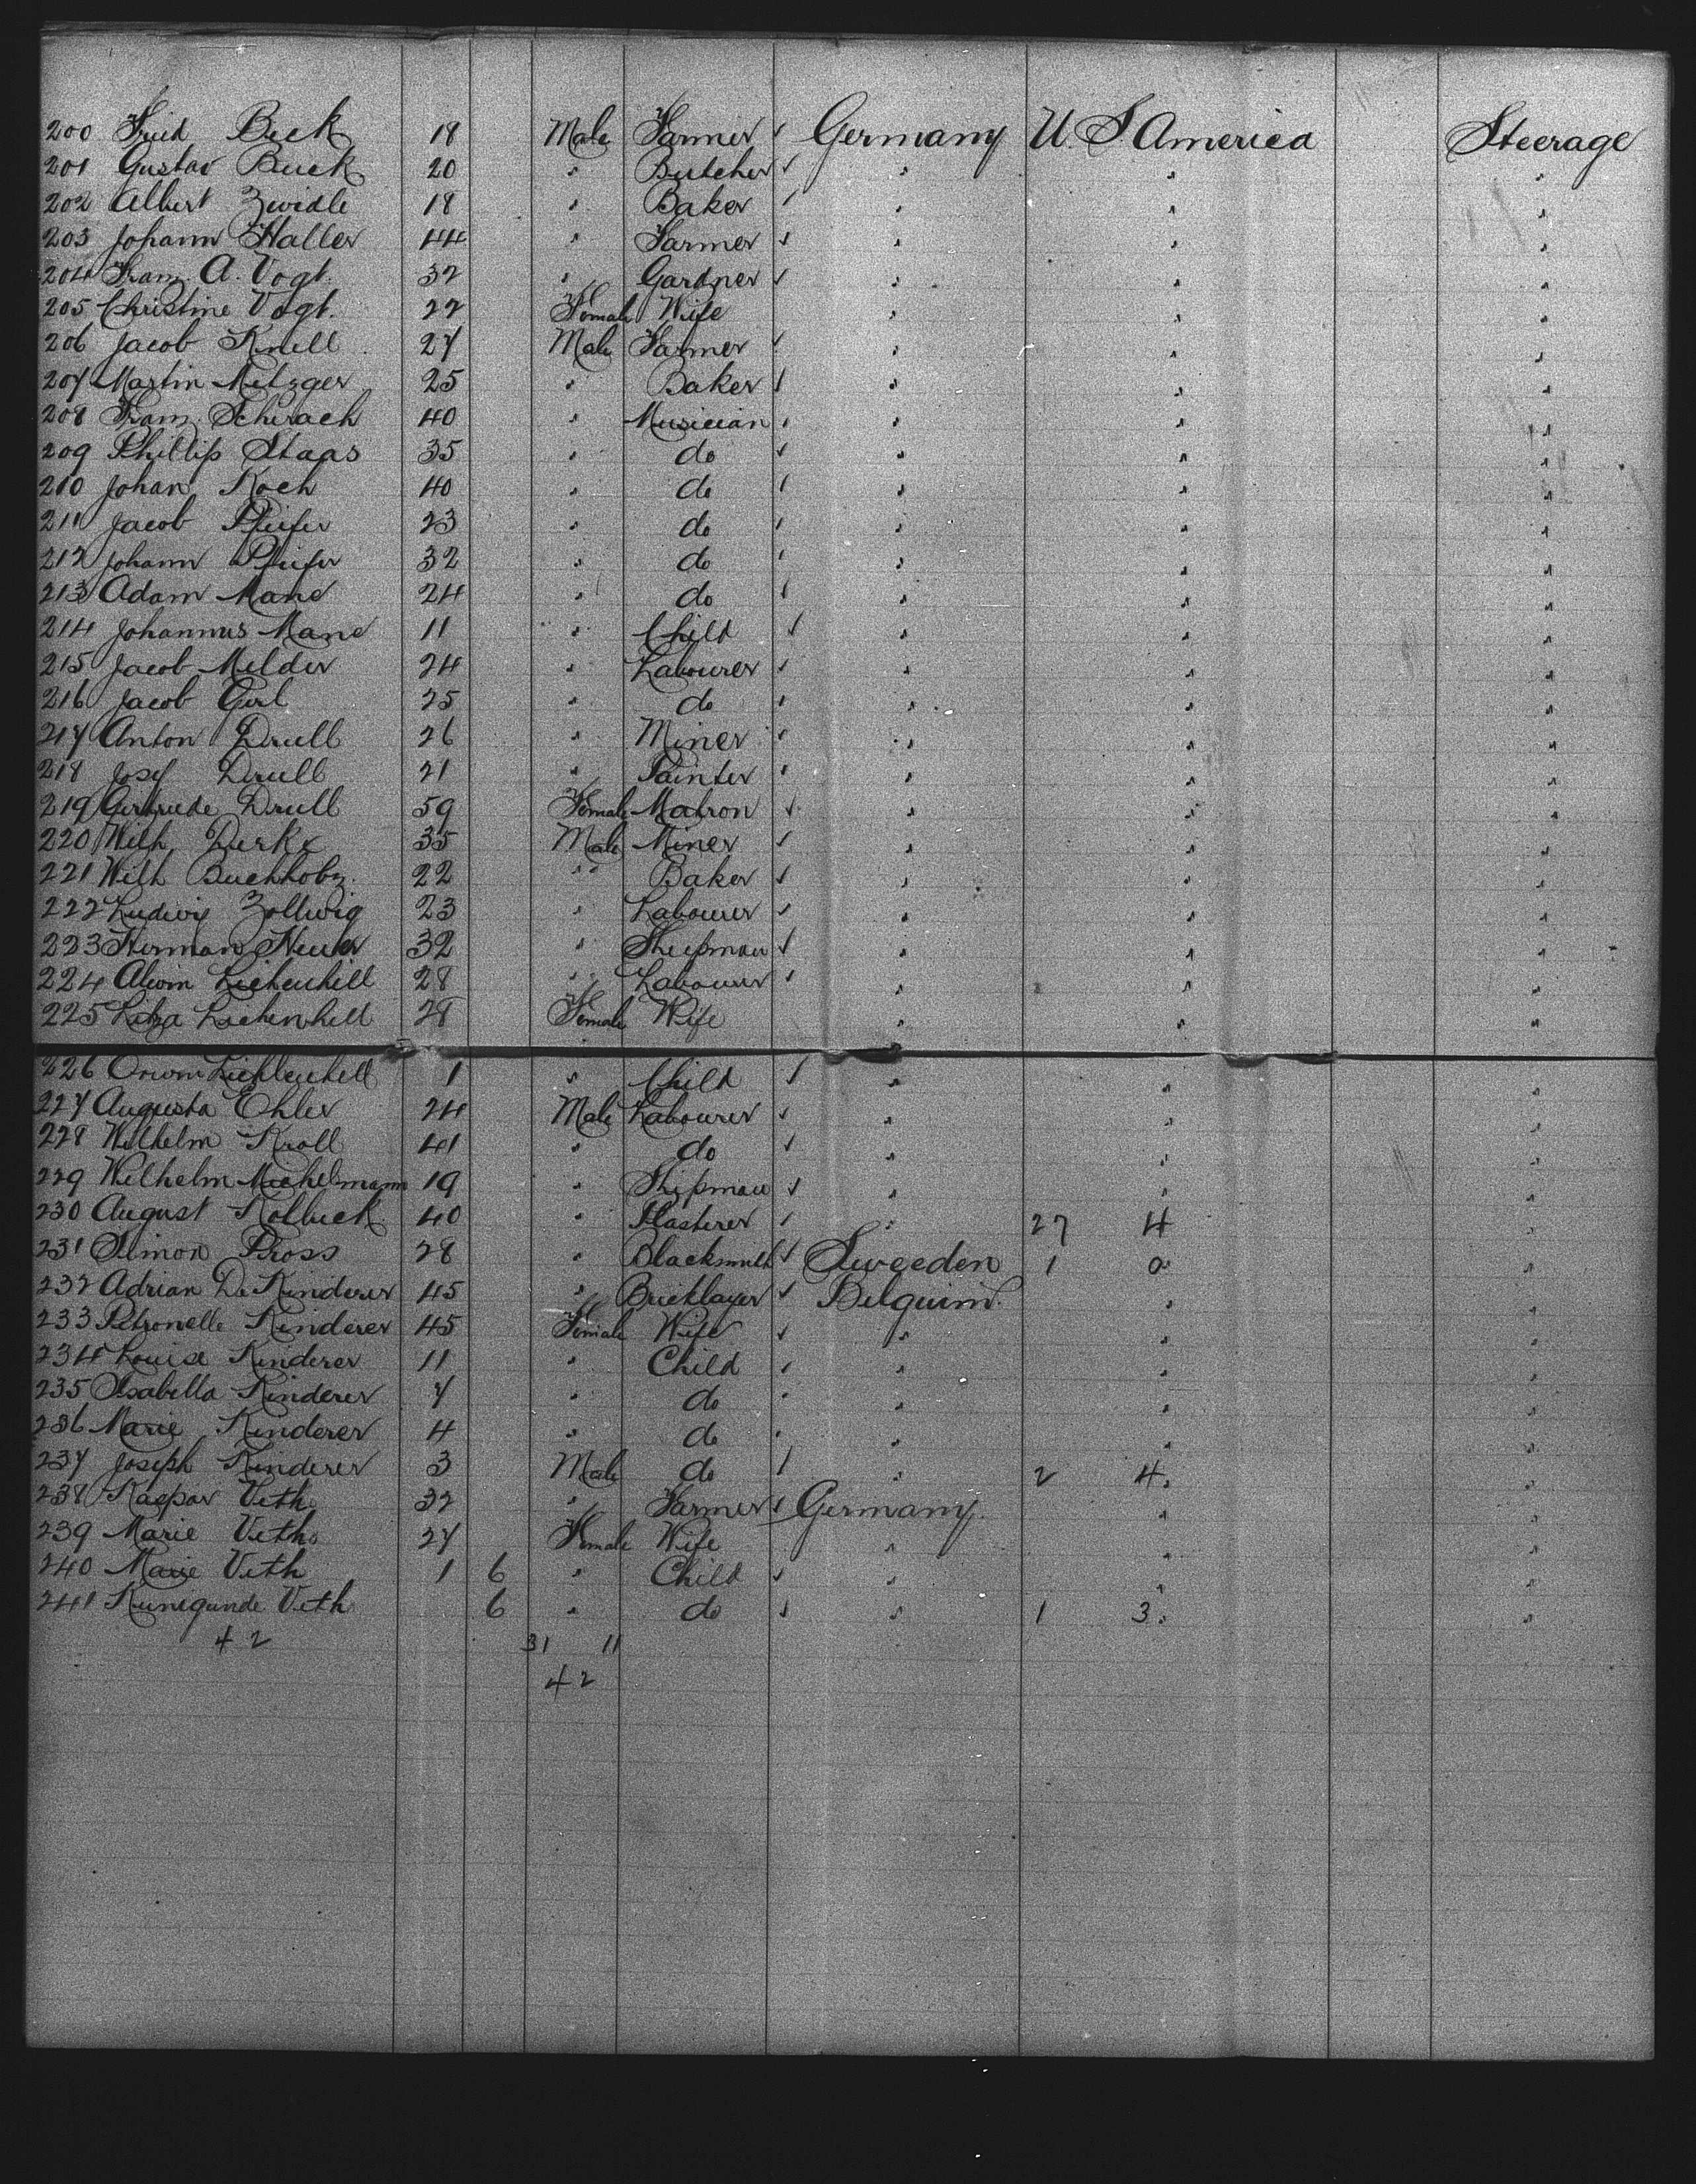 200 Fried Beck 18 Male Farmer Germany U. S. America Steerage
201 Gustav Buck 20 " Butcher " " "
202 Albert Zwidle 18 " Baker " " "
203 Johann Haller 44 " Farmer " " "
204 Franz A. Vogt. 32 " Gardner " " "
205 Christine Vogt. 22 Female Wife " " "
206 Jacob Knell 27 Male Farmer " " "
207 Martin Metzger 25 " Baker " " "
208 Franz Schirach 40 " Musician " " "
209 Phillip Staas 35 " do " " "
210 Johan Koch 40 " do " " "
211 Jacob Pfeifer 23 " do " " "
212 Johann Pfeifer 32 " do " " "
213 Adam Mane 24 " do " " "
214 Johannus Mane 11 " Child " " "
215 Jacob Melder 24 " Labourer " " "
216 Jacob Girl 25 " do " " "
217 Anton Drull 26 " Miner " " "
218 Josef Drull 21 " Painter " " "
219 Gertrude Drull 59 Female Matron " " "
220 Wilh Derkx 35 Male Miner " " "
221 Wilh Buchholz. 22 " Baker " " "
222 Ludwig Zollwig 23 " Labourer " " "
223 Herman Heuer 32 " Shipman " " "
224 Alwin Lichenhell 28 " Labourer " " "
225 Liza Lichenhell 28 Female Wife " " "
226 Lichtenhell 1 " Child " " "
227 Augusta Ehler 24 Male Labourer " " "
228 Wilhelm Kroll 41 " do " " "
229 Wilhelm Michelmann 19 " Shipman " " "
230 August Kolbuck 40 " Plasterer " 27 4 "
231 Simon Pross 28 " Blacksmith Sweeden 1 0 "
232 Adrian De Kinderer 45 " Bricklayer Belguim. " "
233 Petronelle Kinderer 45 Female Wife " " "
234 Louise Kinderer 11 " Child " " "
235 Isabella Kinderer 7 " do " " "
236 Marie Kinderer 4 " do " " "
237 Joseph Kinderer 3 Male do " 2 4 "
238 Kaspar Veth 32 " Farmer Germany. " "
239 Marie Veth 27 Female Wife " " "
240 Marie Veth 1 6 " Child " " "
241 Kunigunde Veth 6 " do " 1 3 "
42 31 11
42